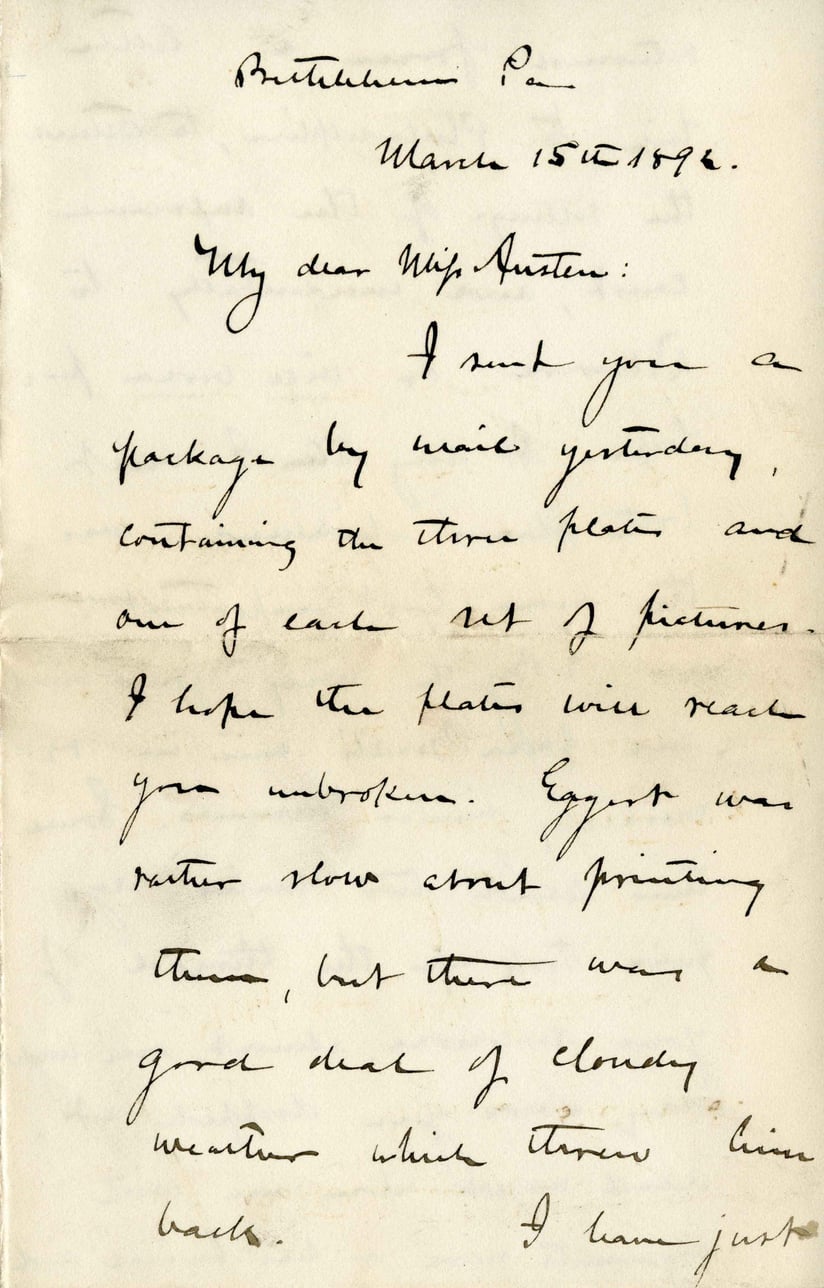 Bethlehem Pa
March 15th 1892.
My dear Miss Austen:
I sent you a
package by mail yesterday,
containing the three plates and
one of each set of pictures.
I hope the plates will reach
you unbroken. Eggert was
rather slow about printing
them, but there was a
good deal of cloudy
weather which threw him
back. I have just